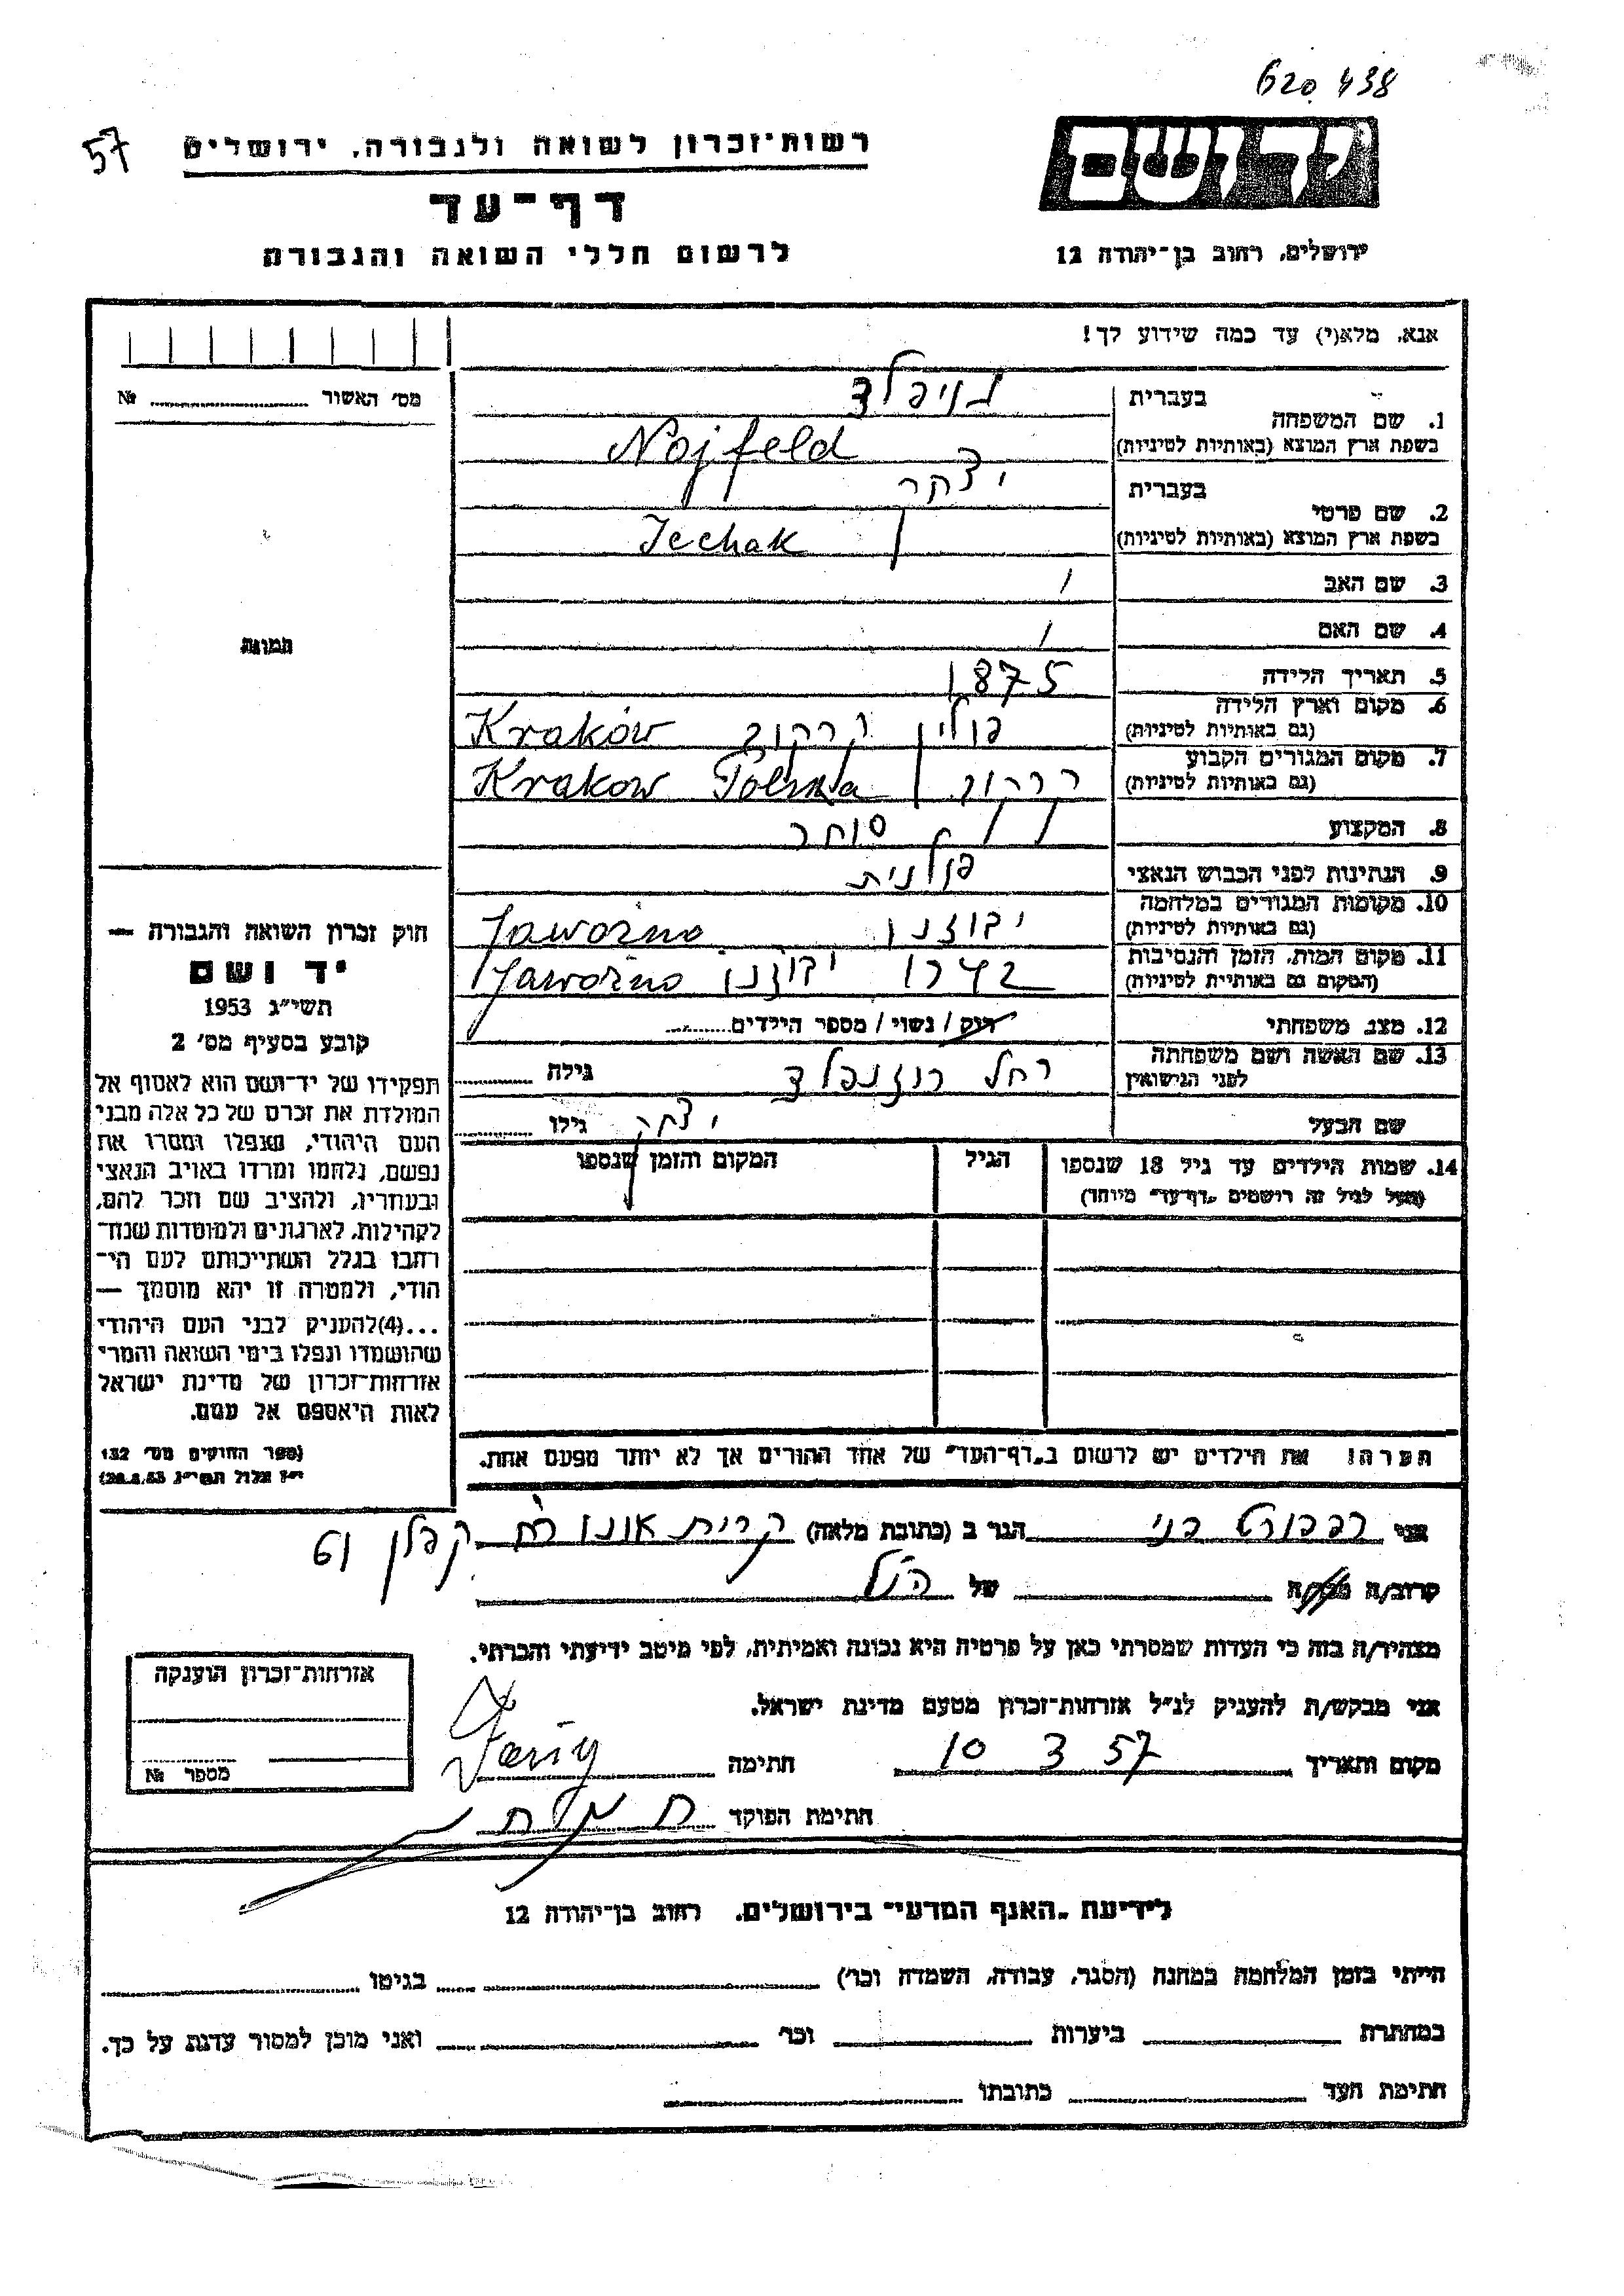 620438
57
רשות־זכרון לשואה ולגבורה, ירושלים
יד ושם
דף־עד
לרשום חללי השואה והגבורה
ירושלים, רחוב בן־יהודה 12
אנא, מלא(י) עד כמה שידוע לך!
מס׳ האשור № 
1. שם המשפחה
בעברית נויפלד
בשפת ארץ המוצא (באותיות לטיניות) Nojfeld
2. שם פרטי
בעברית יצחק
בשפת ארץ המוצא (באותיות לטיניות) Icchak
3. שם האב /
4. שם האם /
תמונה
5. תאריך הלידה 1875
6. מקום וארץ הלידה
(גם באותיות לטיניות) פולין קרקוב Kraków
7. מקום המגורים הקבוע
(גם באותיות לטיניות) קרקוב Krakow Polska
8. המקצוע סוחר
9. הנתינות לפני הכבוש הנאצי פולנית
10. מקומות המגורים במלחמה
(גם באותיות לטיניות) Jaworżno
11. מקום המות, הזמן והנסיבות
(המקום גם באותיות לטיניות) 1942 Jaworżno
12. מצב משפחתי רווק / נשוי / מספר הילדים
13. שם האשה ושם משפחתה
לפני הנישואין רחל רוזנפלד גילה
שם הבעל יצחק גילו
14. שמות הילדים עד גיל 18 שנספו
(מעל לגיל זה רושמים „דף־עד״ מיוחד)
הגיל
המקום והזמן שנספו
חוק זכרון השואה והגבורה —
יד ושם
תשי״ג 1953
קובע בסעיף מס׳ 2
תפקידו של יד־ושם הוא לאסוף אל
המולדת את זכרם של כל אלה מבני
העם היהודי, שנפלו ומסרו את
נפשם, נלחמו ומרדו באויב הנאצי
ובעוזריו, ולהציב שם וזכר להם,
לקהילות, לארגונים ולמוסדות שנח־
רבו בגלל השתייכותם לעם הי־
הודי, ולמטרה זו יהא מוסמך —
...(4) להעניק לבני העם היהודי
שהושמדו ונפלו בימי השואה והמרי
אזרחות־זכרון של מדינת ישראל
לאות היאספם אל עמם.
(ספר החוקים מס׳ 132
י״ז אלול תשי״ג 28.8.53)
הערה! את הילדים יש לרשום ב„דף־העד״ של אחד ההורים אך לא יותר מפעם אחת.
אני רפפורט פני הגר ב (כתובת מלאה) קרית אונו רח קפלן 19
קרוב/ה מכר/ה של הנ״ל
מצהיר/ה בזה כי העדות שמסרתי כאן על פרטיה היא נכונה ואמיתית, לפי מיטב ידיעתי והכרתי.
אני מבקש/ת להעניק לנ״ל אזרחות־זכרון מטעם מדינת ישראל.
מקום ותאריך 10 3 57 חתימה
חתימת הפוקד
אזרחות־זכרון הוענקה
מספר №
לידיעת „האגף המדעי״ בירושלים, רחוב בן־יהודה 12
הייתי בזמן המלחמה במחנה (הסגר, עבודה, השמדה וכר׳) בגיטו
במחתרת ביערות וכר׳ ואני מוכן למסור עדות על כך.
חתימת העד כתובתו